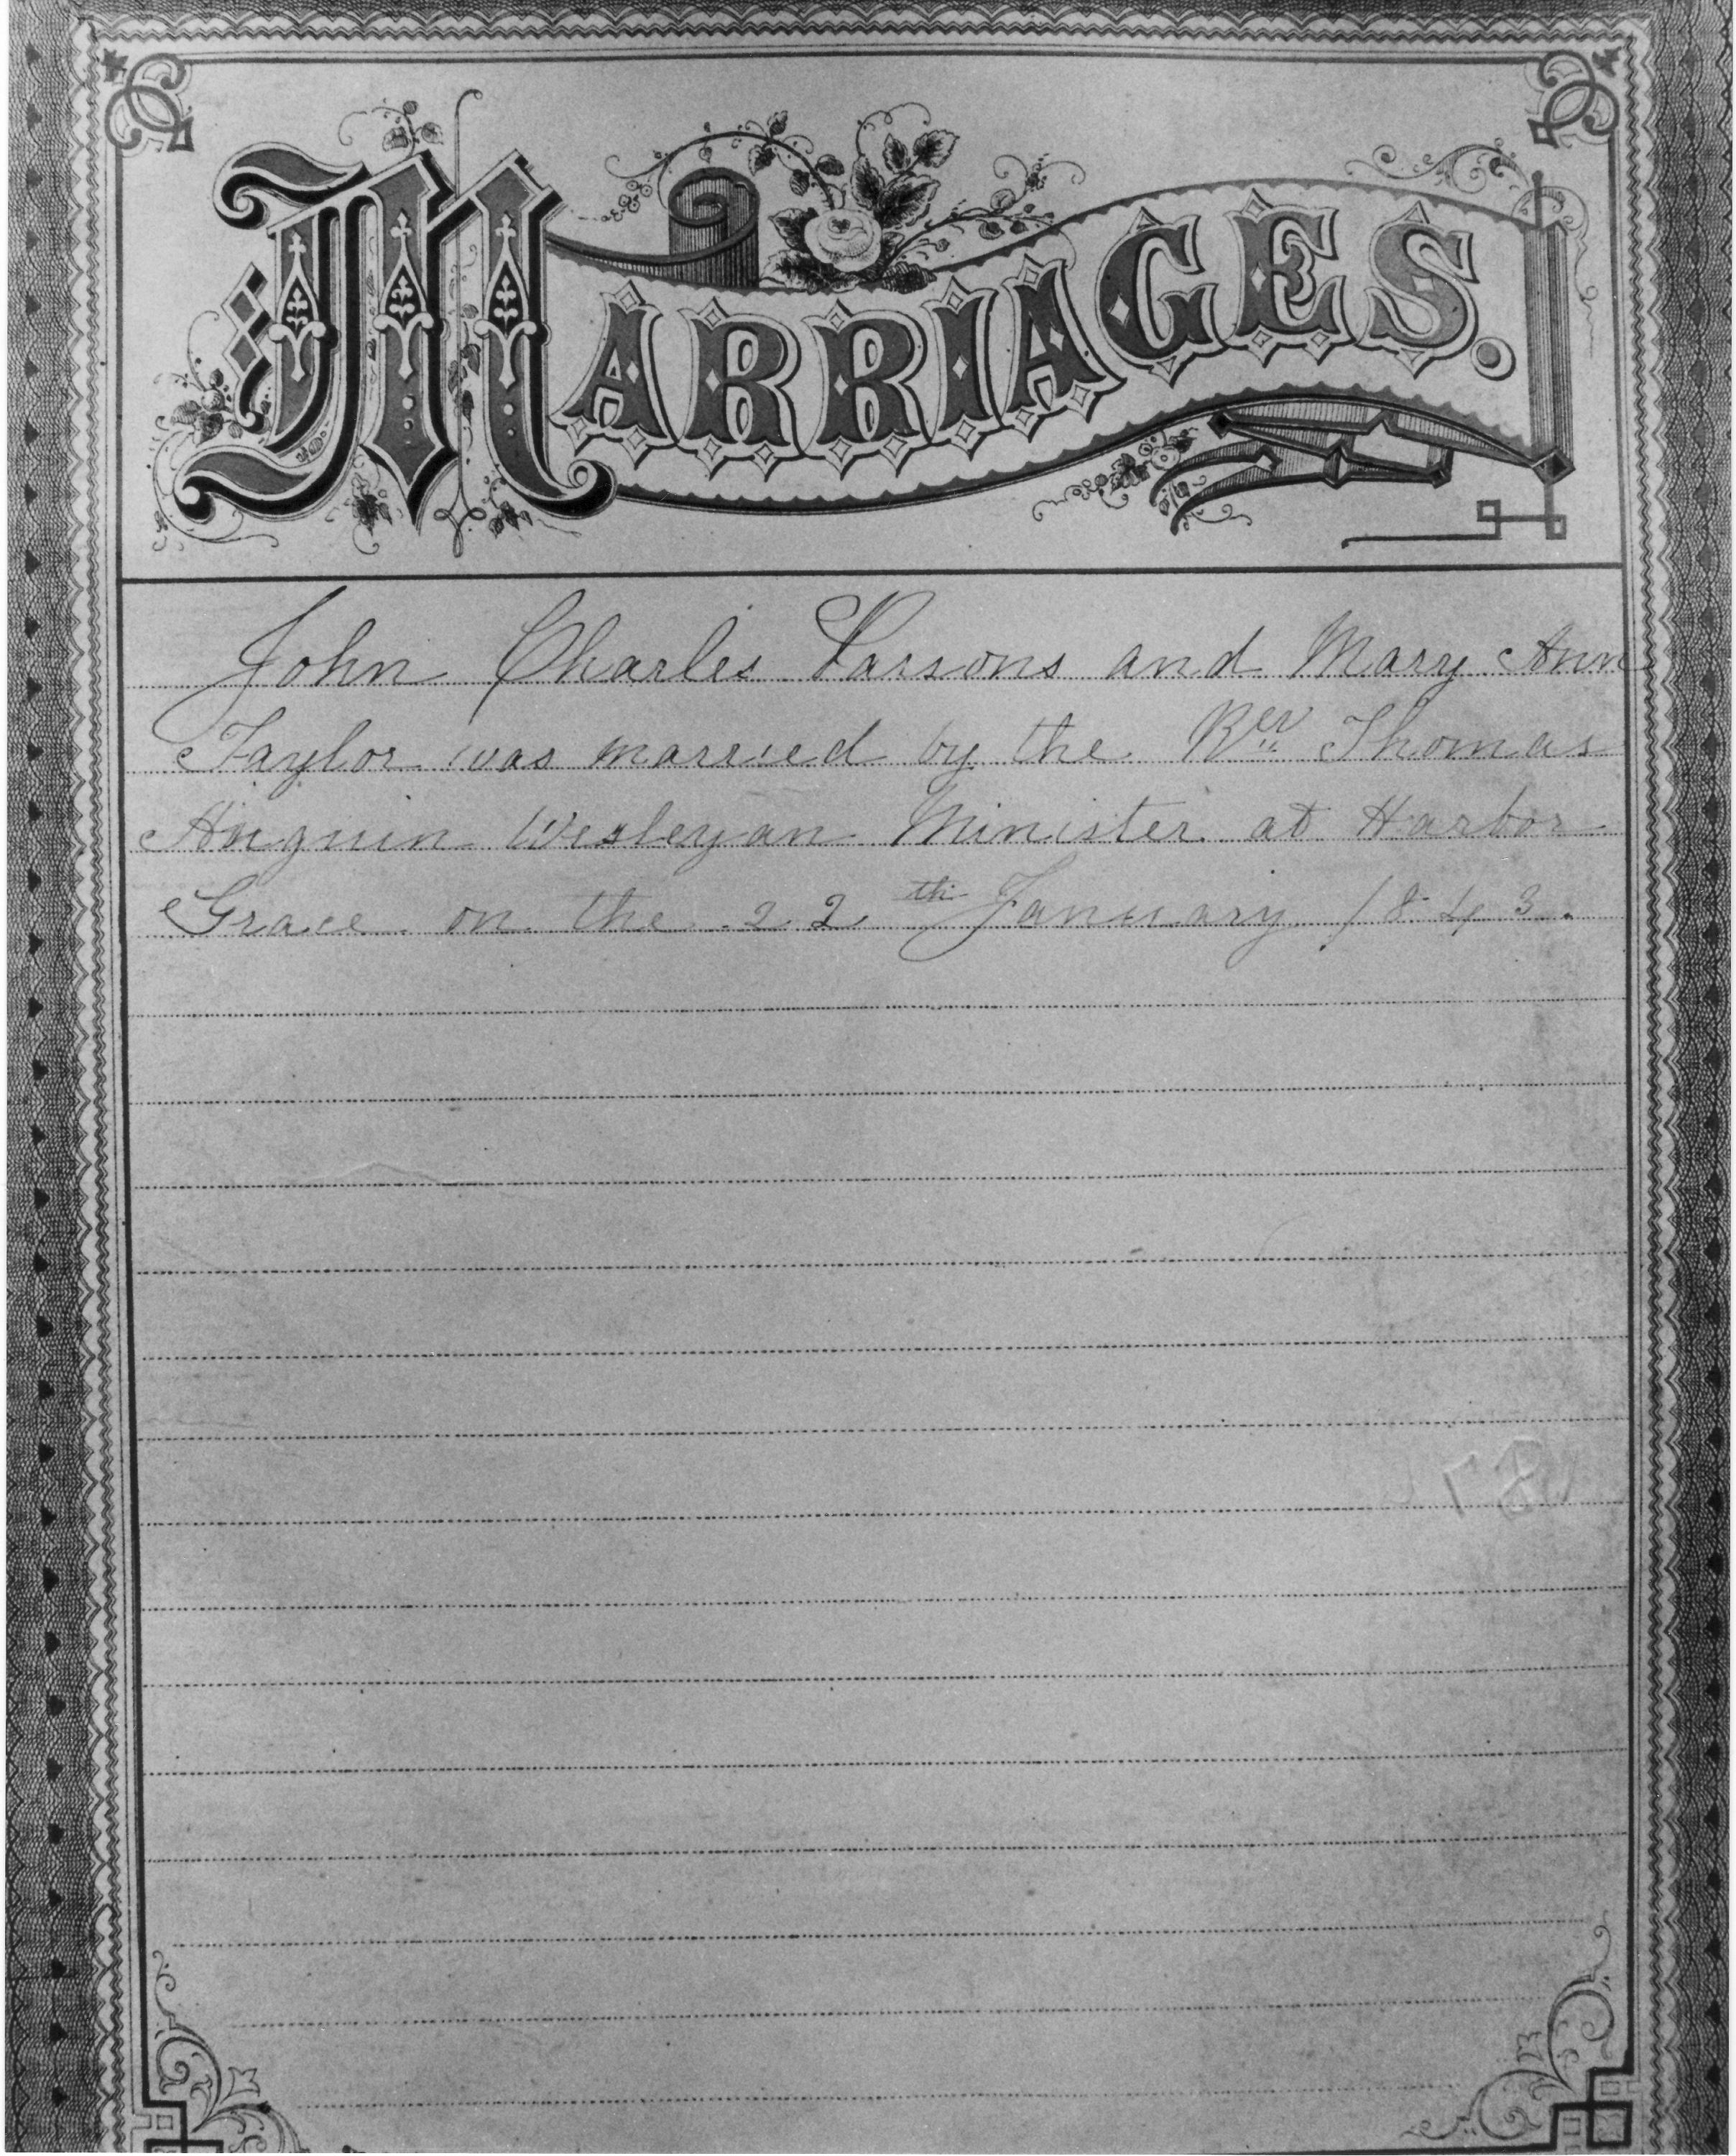 MARRIAGES.
John Charles Parsons and Mary Ann
Taylor was married by the Rev Thomas
Anguin Wesleyan Minister at Harbor
Grace on the 22th January 1843.